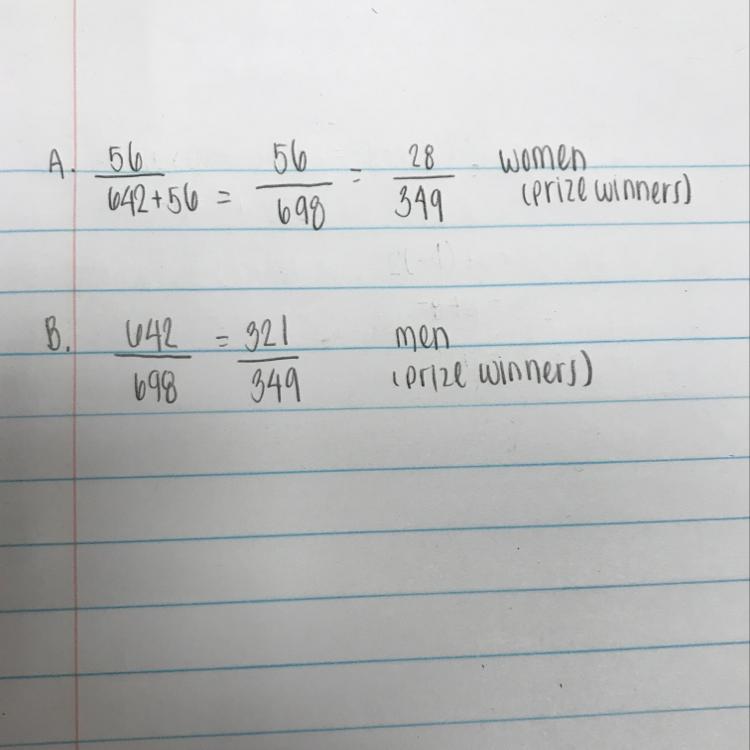 A. 56/642+56 = 56/698 = 28/349 women
(prize winners)
B. 642/698 = 321/349 men
(prize winners)